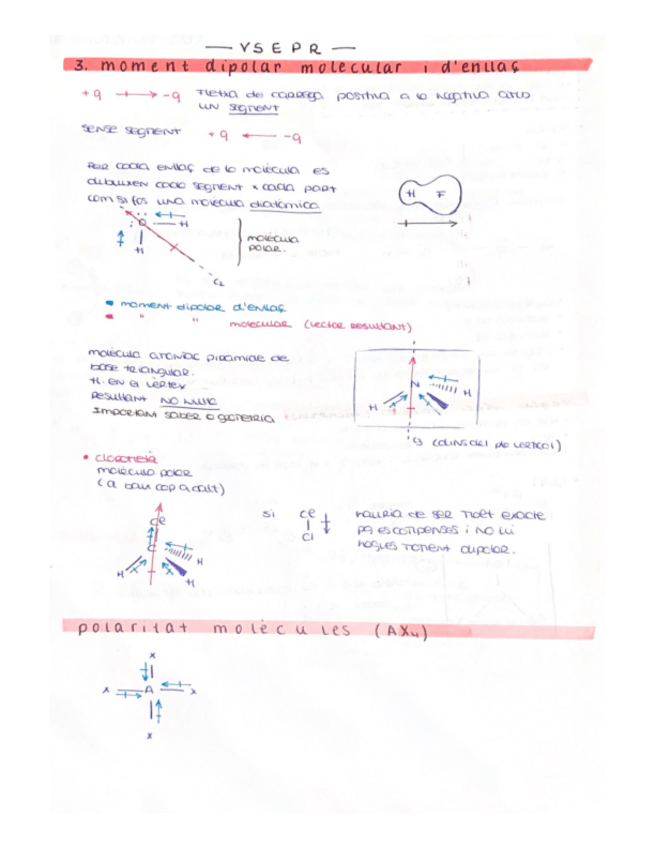 — VSEPR —
3. moment dipolar molecular i d'enllaç
+q → -q Fletxa de càrrega positiva a la negativa amb
un segment
sense segment +q ← -q
Per cada enllaç de la molècula es
dibuixen cada segment x cada part
com si fos una molècula diatòmica
H F
O H
H
molècula
polar.
C2
moment dipolar d'enllaç
" " molecular (vector resultant)
molècula amoníac piràmide de
base triangular.
N en el vèrtex
Resultant NO NUL·LA
Important saber la geometria
N
H H
(dins del pla vertical)
• clorometà
molècula polar
(a baix cap a dalt)
Cl
C
H H
H
si Cl
Cl
hauria de ser Tløt exacte
pq es compensés i NO hi
hagués moment dipolar.
polaritat molècules (AX4)
x
x A x
x